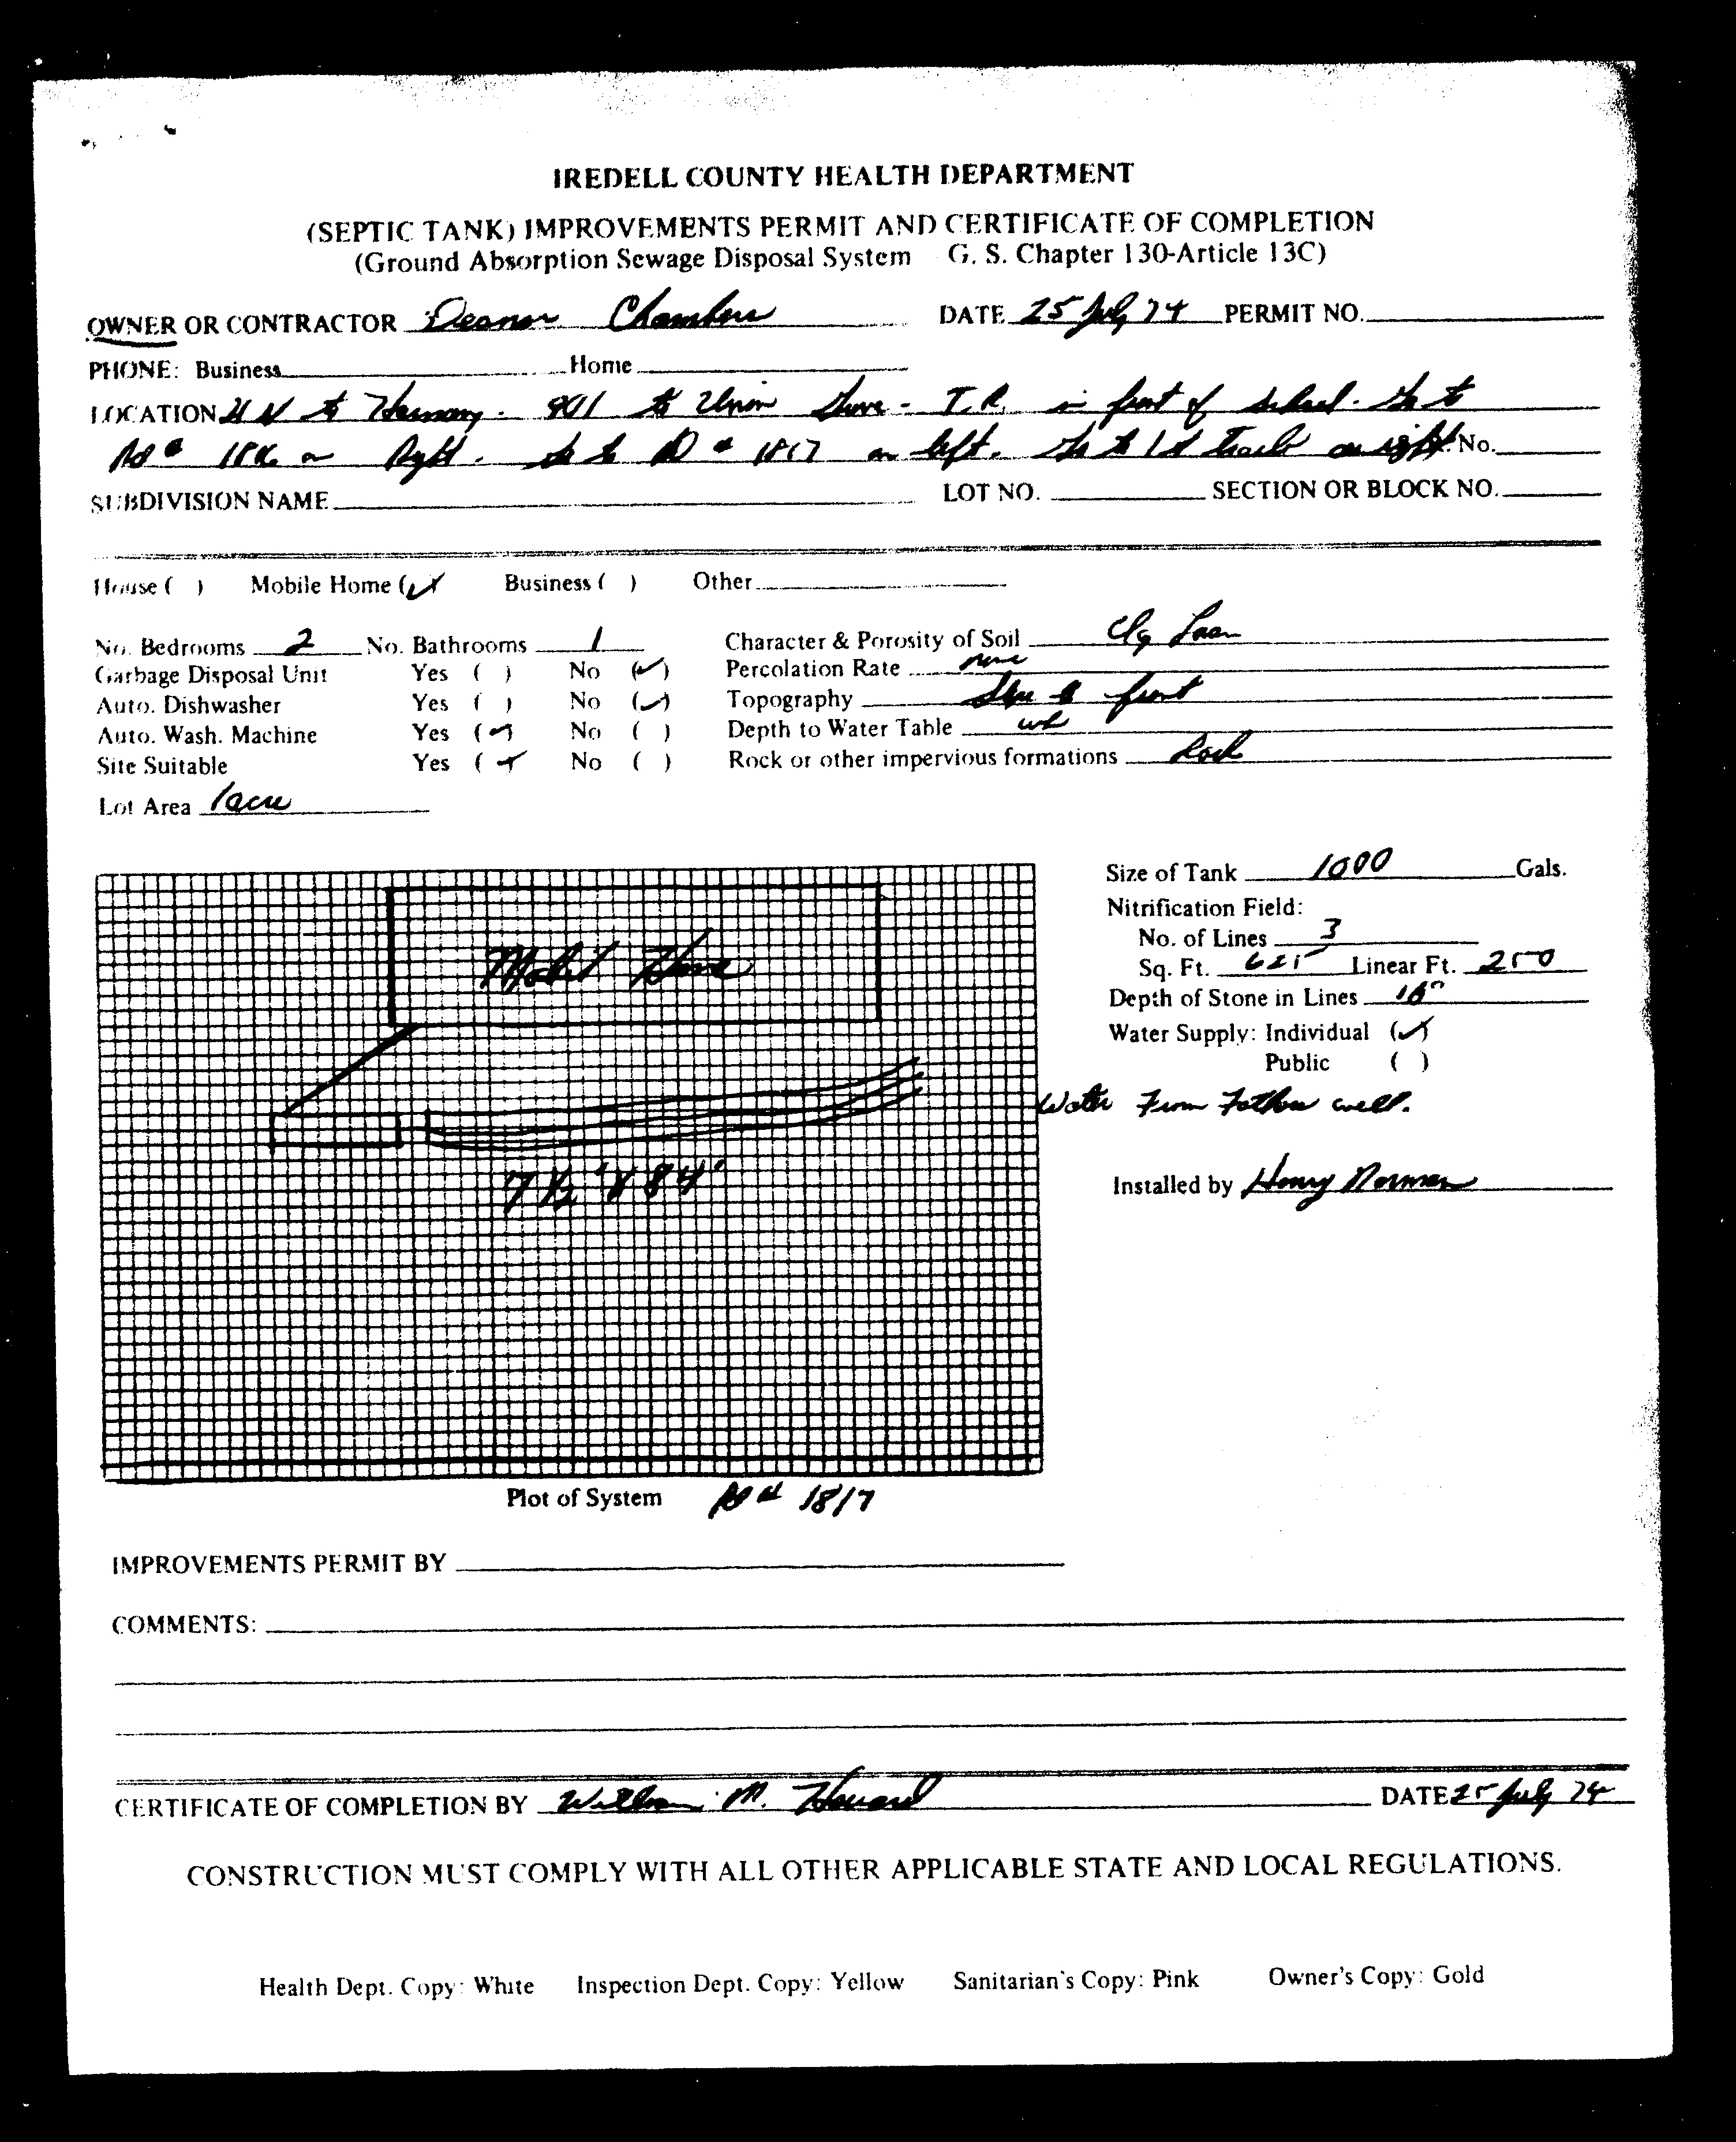 IREDELL COUNTY HEALTH DEPARTMENT
(SEPTIC TANK) IMPROVEMENTS PERMIT AND CERTIFICATE OF COMPLETION
(Ground Absorption Sewage Disposal System G. S. Chapter 130-Article 13C)
OWNER OR CONTRACTOR Deanor Chambers DATE 25 July 74 PERMIT NO.
PHONE: Business Home
LOCATION 21 N to Harmony - 901 to Union Grove - T.R. in front of school. Go to
Rd # 1816 on Right. Go to Rd # 1817 on left. Go to 1st trail on right. No.
SUBDIVISION NAME LOT NO. SECTION OR BLOCK NO.
House ( ) Mobile Home (✓) Business ( ) Other
No. Bedrooms 2 No. Bathrooms 1 Character & Porosity of Soil Cly Loam
Garbage Disposal Unit Yes ( ) No (✓) Percolation Rate none
Auto. Dishwasher Yes ( ) No (✓) Topography Slope to front
Auto. Wash. Machine Yes (✓) No ( ) Depth to Water Table
Site Suitable Yes (✓) No ( ) Rock or other impervious formations Rock
Lot Area 1 acre
Size of Tank 1000 Gals.
Nitrification Field:
No. of Lines 3
Sq. Ft. 625 Linear Ft. 250
Depth of Stone in Lines 16"
Water Supply: Individual (✓)
Public ( )
Water From Fathers well.
Installed by Henry Norman
Mobil Home
7 1/2 'X 84'
Plot of System Rd # 1817
IMPROVEMENTS PERMIT BY
COMMENTS:
CERTIFICATE OF COMPLETION BY William M. Howard DATE 25 July 74
CONSTRUCTION MUST COMPLY WITH ALL OTHER APPLICABLE STATE AND LOCAL REGULATIONS.
Health Dept. Copy: White Inspection Dept. Copy: Yellow Sanitarian's Copy: Pink Owner's Copy: Gold